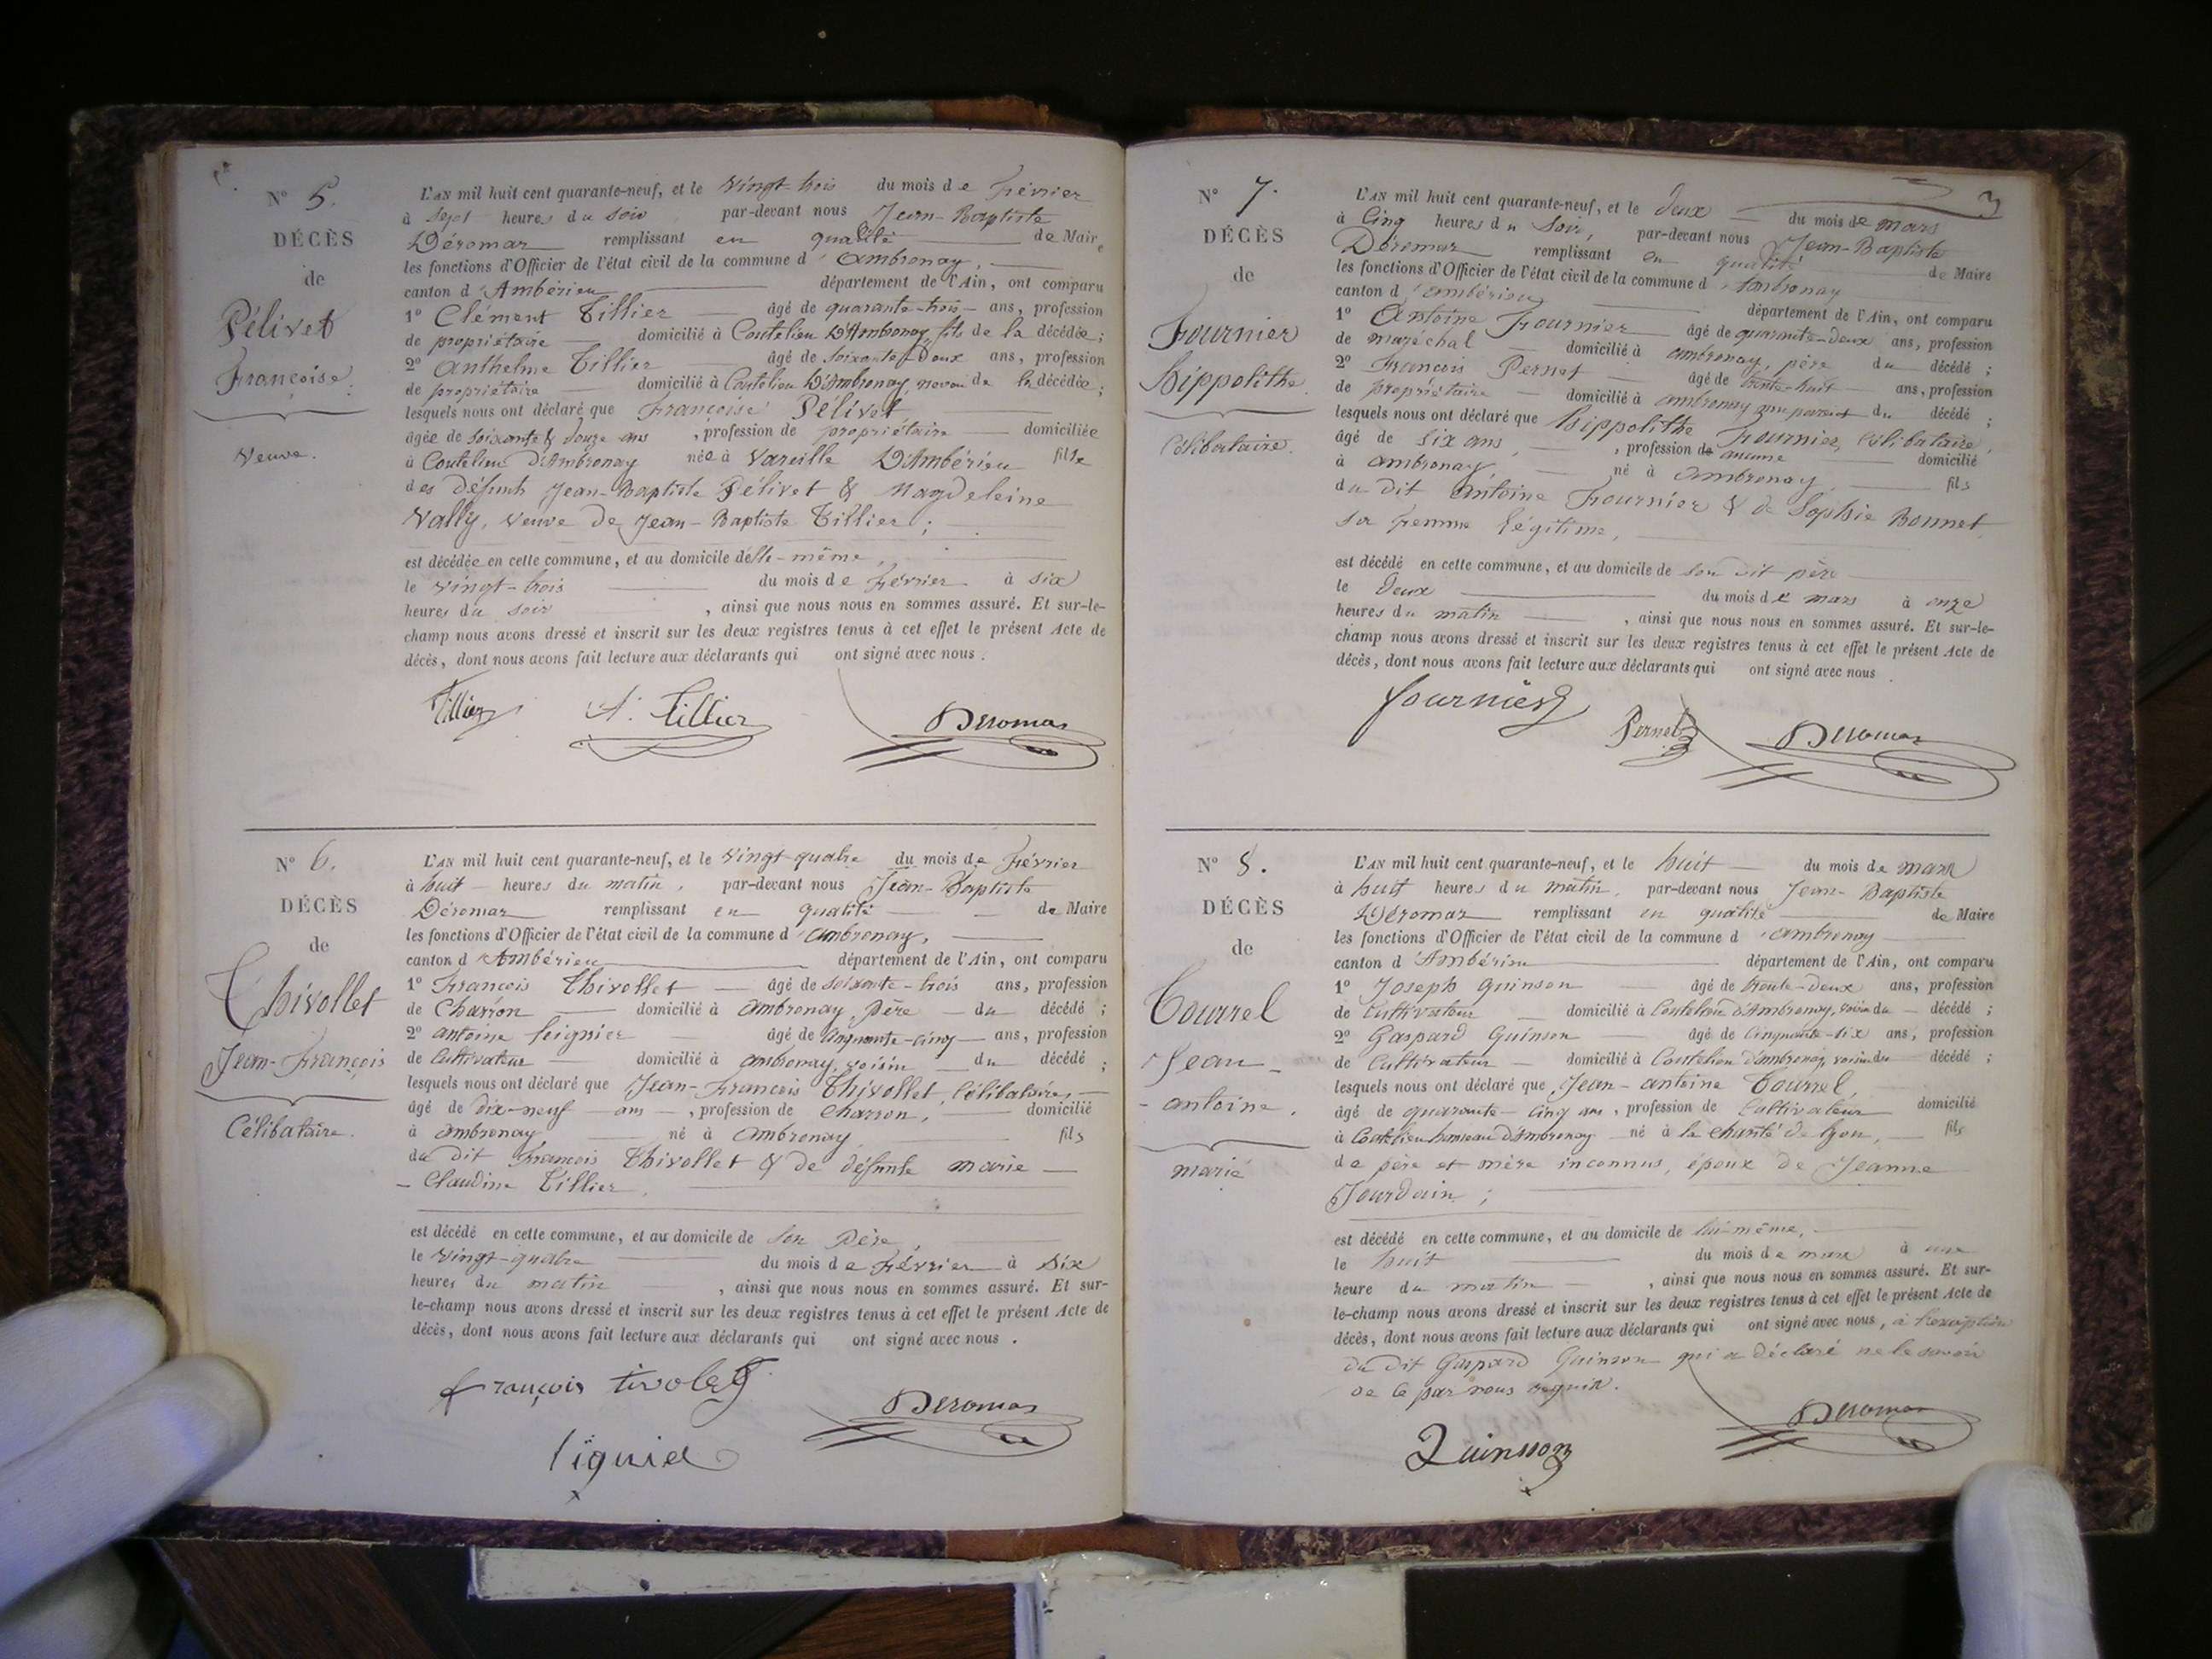 N° 5.
DÉCÈS
de
Pélivet
Françoise.
Veuve.
L'AN mil huit cent quarante-neuf, et le Vingt-trois du mois de Février
à Sept heures du Soir par-devant nous Jean-Baptiste
Déromas remplissant en qualité de Maire
les fonctions d'Officier de l'état civil de la commune d'Ambronay,
canton d'Ambérieu département de l'Ain, ont comparu
1° Clément Tillier âgé de quarante-trois ans, profession
de propriétaire domicilié à Coutelieu D'Ambronay, fils de la décédée;
2° Anthelme Tillier âgé de Soixante & Deux ans, profession
de propriétaire domicilié à Coutelieu D'Ambronay, neveu de la décédée;
lesquels nous ont déclaré que Françoise Pélivet
âgée de Soixante & douze ans, profession de propriétaire domiciliée
à Coutelieu D'Ambronay née à Vareille D'Ambérieu fille
des défunts Jean-Baptiste Pélivet & Magdeleine
Vally, Veuve de Jean-Baptiste Tillier;
est décédée en cette commune, et au domicile d'elle-même,
le Vingt-trois du mois de Février à Six
heures du Soir, ainsi que nous nous en sommes assuré. Et sur-le-
champ nous avons dressé et inscrit sur les deux registres tenus à cet effet le présent Acte de
décès, dont nous avons fait lecture aux déclarants qui ont signé avec nous.
Tillier A. Tillier Deromas
N° 6.
DÉCÈS
de
Thivollet
Jean-François
Célibataire.
L'AN mil huit cent quarante-neuf, et le Vingt-quatre du mois de Février
à huit heures du matin, par-devant nous Jean-Baptiste
Déromas remplissant en qualité de Maire
les fonctions d'Officier de l'état civil de la commune d'Ambronay,
canton d'Ambérieu département de l'Ain, ont comparu
1° François Thivollet âgé de Soixante-trois ans, profession
de Charron domicilié à Ambronay, Père du décédé;
2° Antoine Leignier âgé de Cinquante-cinq ans, profession
de Cultivateur domicilié à Ambronay, voisin du décédé;
lesquels nous ont déclaré que Jean-François Thivollet, Célibataire,
âgé de dix-neuf ans, profession de Charron, domicilié
à Ambronay né à Ambronay fils
du dit François Thivollet & de défunte Marie
- Claudine Tillier,
est décédé en cette commune, et au domicile de Son Père,
le Vingt-quatre du mois de Février à Six
heures du matin, ainsi que nous nous en sommes assuré. Et sur-
le-champ nous avons dressé et inscrit sur les deux registres tenus à cet effet le présent Acte de
décès, dont nous avons fait lecture aux déclarants qui ont signé avec nous.
françois tivolet Deromas
3
N° 7.
DÉCÈS
de
Fournier
Hippolithe.
Célibataire.
L'AN mil huit cent quarante-neuf, et le Deux du mois de Mars
à Cinq heures du Soir, par-devant nous Jean-Baptiste
Déromas remplissant en qualité de Maire
les fonctions d'Officier de l'état civil de la commune d'Ambronay
canton d'Ambérieu département de l'Ain, ont comparu
1° Antoine Fournier âgé de quarante-deux ans, profession
de maréchal domicilié à Ambronay, père du décédé;
2° François Pernet âgé de trente-huit ans, profession
de propriétaire domicilié à Ambronay non parent du décédé;
lesquels nous ont déclaré que Hippolithe Fournier, Célibataire,
âgé de Six ans, profession de aucune domicilié
à Ambronay, né à Ambronay, fils
du dit Antoine Fournier & de Sophie Bonnet
sa Femme légitime,
est décédé en cette commune, et au domicile de Son dit père
le Deux du mois de Mars à onze
heures du matin, ainsi que nous nous en sommes assuré. Et sur-le-
champ nous avons dressé et inscrit sur les deux registres tenus à cet effet le présent Acte de
décès, dont nous avons fait lecture aux déclarants qui ont signé avec nous.
fournier Pernet Deromas
N° 8.
DÉCÈS
de
Tournel
Jean-
-antoine.
marié
L'AN mil huit cent quarante-neuf, et le huit du mois de Mars
à huit heures du matin, par-devant nous Jean-Baptiste
Déromas remplissant en qualité de Maire
les fonctions d'Officier de l'état civil de la commune d'Ambronay
canton d'Ambérieu département de l'Ain, ont comparu
1° Joseph Quinson âgé de trente-deux ans, profession
de Cultivateur domicilié à Coutelieu d'Ambronay, voisin du décédé;
2° Gaspard Quinson âgé de Cinquante-six ans, profession
de Cultivateur domicilié à Coutelieu d'Ambronay, voisin du décédé;
lesquels nous ont déclaré que Jean-antoine Tournel,
âgé de quarante-cinq ans, profession de Cultivateur domicilié
à Coutelieu hameau d'Ambronay né à la Charité de Lyon, fils
de père et mère inconnus, époux de Jeanne
Jourdain;
est décédé en cette commune, et au domicile de lui-même,
le huit du mois de Mars à une
heure du matin, ainsi que nous nous en sommes assuré. Et sur-
le-champ nous avons dressé et inscrit sur les deux registres tenus à cet effet le présent Acte de
décès, dont nous avons fait lecture aux déclarants qui ont signé avec nous, à l'exception
du dit Gaspard Quinson qui a déclaré ne le savoir
de ce par nous requis.
Quinson Deromas